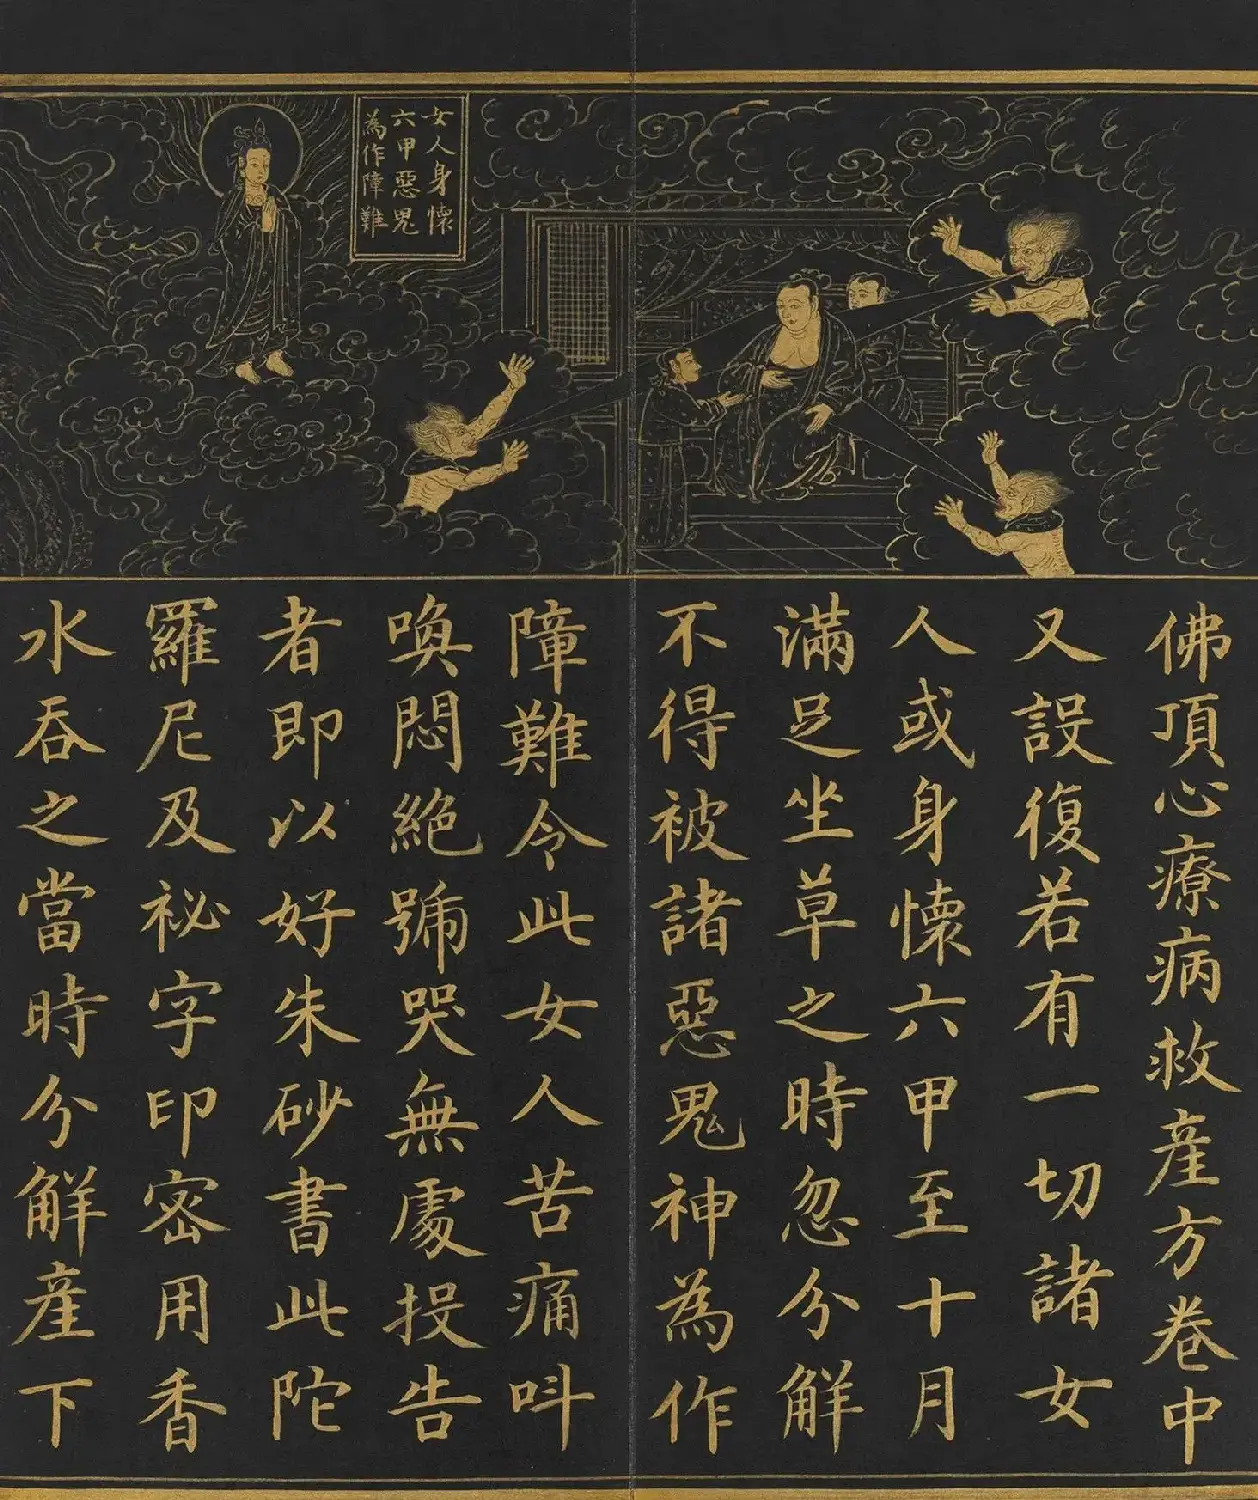 女人身懷
六甲惡鬼
為作障難
佛頂心療病救產方卷中
又設復若有一切諸女
人或身懷六甲至十月
滿足坐草之時忽分解
不得被諸惡鬼神為作
障難令此女人苦痛叫
喚悶絕號哭無處投告
者即以好朱砂書此陀
羅尼及祕字印密用香
水吞之當時分解產下